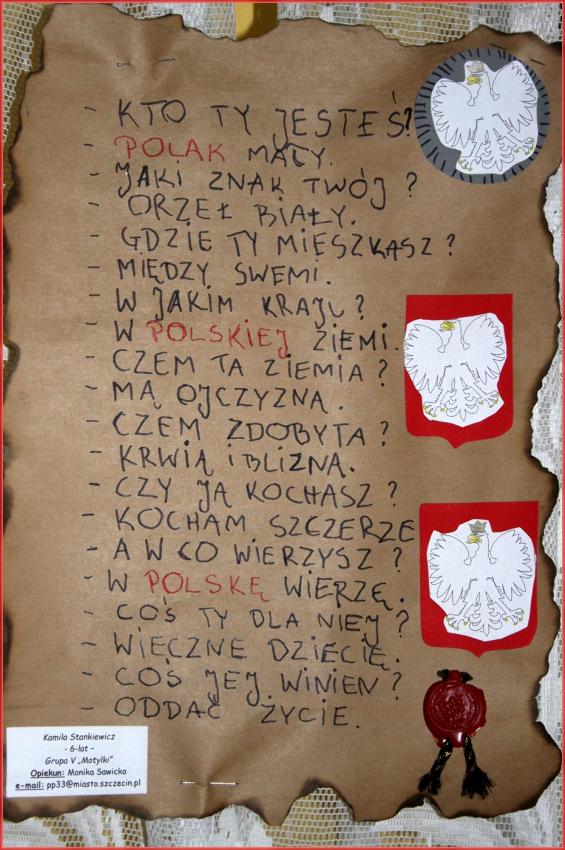 - KTO TY JESTEŚ?
- POLAK MAŁY.
- JAKI ZNAK TWÓJ ?
- ORZEŁ BIAŁY.
- GDZIE TY MIESZKASZ ?
- MIĘDZY SWEMI.
- W JAKIM KRAJU ?
- W POLSKIEJ ZIEMI.
- CZEM TA ZIEMIA ?
- MĄ OJCZYZNĄ.
- CZEM ZDOBYTA ?
- KRWIĄ i BLIZNĄ.
- CZY JĄ KOCHASZ ?
- KOCHAM SZCZERZE
- A W CO WIERZYSZ ?
- W POLSKĘ WIERZĘ.
- COŚ TY DLA NIEJ ?
- WIĘCZNE DZIECIĘ.
- COŚ JEJ WINIEN ?
- ODDAĆ ŻYCIE.
Kamila Stankiewicz
- 6-lat -
Grupa V „Motylki"
Opiekun: Monika Sawicka
e-mail: pp33@miasto.szczecin.pl